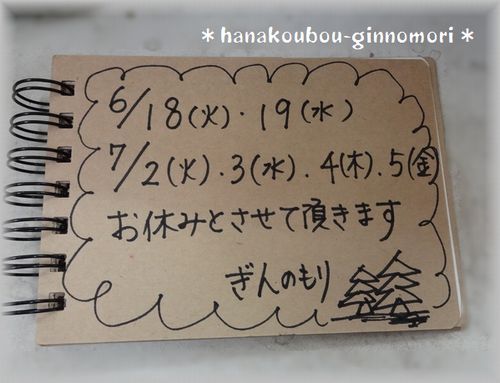 ＊hanakoubou-ginnomori＊
6/18(火)・19(水)
7/2(火)．3(水)．4(木)．5(金)
お休みとさせて頂きます
ぎんのもり